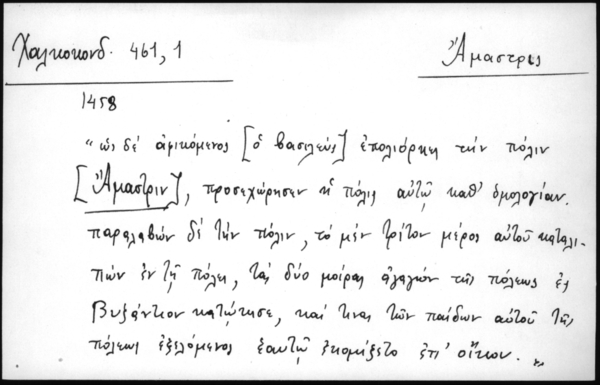 Χαλκοκονδ. 461,1
Ἄμαστρις
1458
"ὡς δέ ἀφικόμενος [ὁ βασιλεύς] ἐπολιόρκει τήν πόλιν
[Ἄμαστριν], προσεχώρησεν ἡ πόλις αὐτῷ καθ' ὁμολογίαν.
παραλαβών δέ τήν πόλιν, τό μέν τρίτον μέρος αὐτοῦ καταλι-
πών ἐν τῇ πόλει, τάς δύο μοίρας ἀγαγών τῆς πόλεως ἐς
Βυζάντιον κατῴκησε, καί τινας τῶν παίδων αὐτοῦ τῆς
πόλεως ἐξελόμενος ἑαυτῷ ἐκομίζετο ἐπ' οἴκου. "